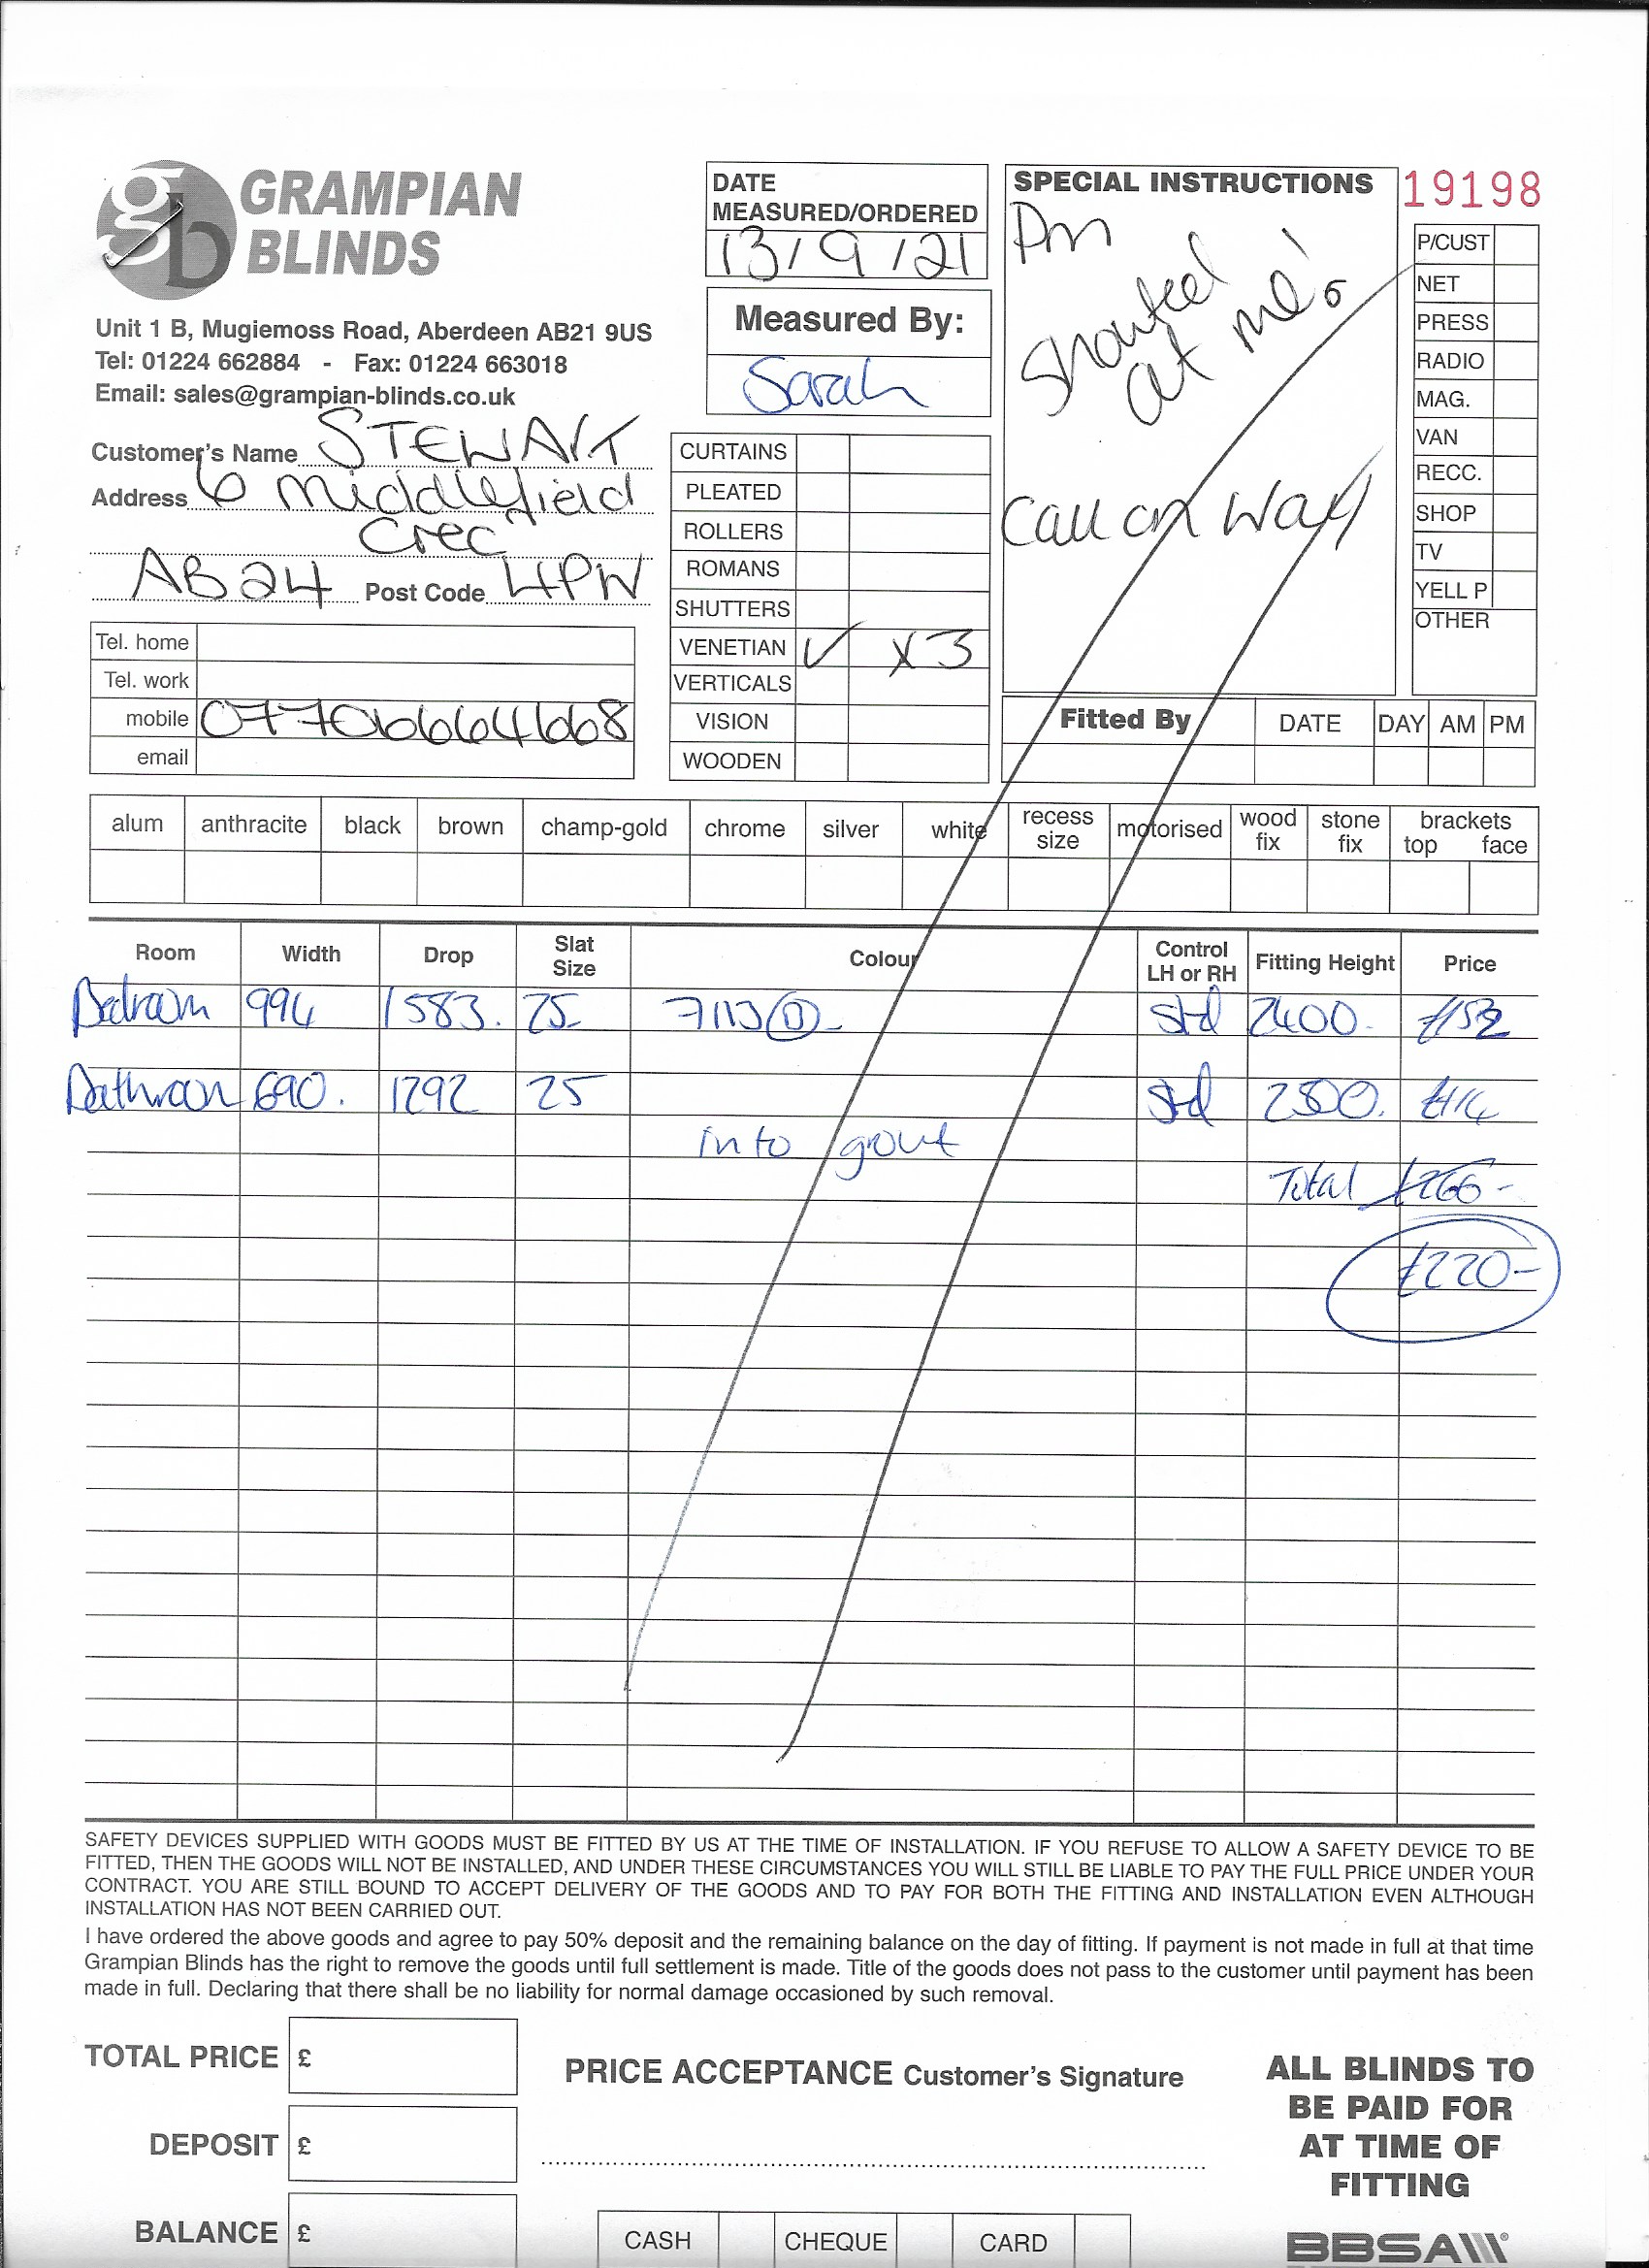 GRAMPIAN
BLINDS
Unit 1 B, Mugiemoss Road, Aberdeen AB21 9US
Tel: 01224 662884 - Fax: 01224 663018
Email: sales@grampian-blinds.co.uk
Customer's Name STEWART
Address 6 Middlefield
Crec
AB24 Post Code 4PW
Tel. home
Tel. work
mobile 07706664668
email
DATE
MEASURED/ORDERED
13/9/21
Measured By:
Sarah
CURTAINS
PLEATED
ROLLERS
ROMANS
SHUTTERS
VENETIAN ✓ x3
VERTICALS
VISION
WOODEN
SPECIAL INSTRUCTIONS
Pm
Shouted
at me!
Call on way
19198
P/CUST
NET
PRESS
RADIO
MAG.
VAN
RECC.
SHOP
TV
YELL P
OTHER
Fitted By DATE DAY AM PM
alum anthracite black brown champ-gold chrome silver white recess size motorised wood fix stone fix brackets top face
Room Width Drop Slat Size Colour Control LH or RH Fitting Height Price
Bedroom 994 1583. 25 7113 (D) Std 2400. £152
Bathroom 690. 1292 25 Std 2500. £114
into grout
Total £266-
£220-
SAFETY DEVICES SUPPLIED WITH GOODS MUST BE FITTED BY US AT THE TIME OF INSTALLATION. IF YOU REFUSE TO ALLOW A SAFETY DEVICE TO BE
FITTED, THEN THE GOODS WILL NOT BE INSTALLED, AND UNDER THESE CIRCUMSTANCES YOU WILL STILL BE LIABLE TO PAY THE FULL PRICE UNDER YOUR
CONTRACT. YOU ARE STILL BOUND TO ACCEPT DELIVERY OF THE GOODS AND TO PAY FOR BOTH THE FITTING AND INSTALLATION EVEN ALTHOUGH
INSTALLATION HAS NOT BEEN CARRIED OUT.
I have ordered the above goods and agree to pay 50% deposit and the remaining balance on the day of fitting. If payment is not made in full at that time
Grampian Blinds has the right to remove the goods until full settlement is made. Title of the goods does not pass to the customer until payment has been
made in full. Declaring that there shall be no liability for normal damage occasioned by such removal.
TOTAL PRICE £
DEPOSIT £
BALANCE £
PRICE ACCEPTANCE Customer's Signature
CASH CHEQUE CARD
ALL BLINDS TO
BE PAID FOR
AT TIME OF
FITTING
BBSA